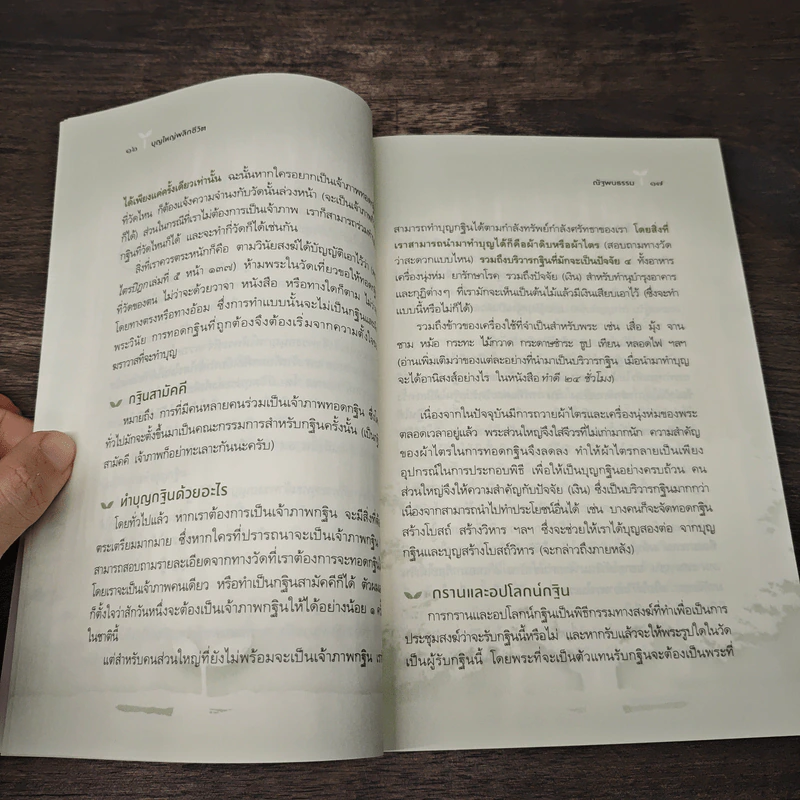 ๑๖ บุญใหญ่พลิกชีวิต
ได้เพียงแค่ครั้งเดียวเท่านั้น ฉะนั้นหากใครอยากเป็นเจ้าภาพทอด
ที่วัดไหน ก็ต้องแจ้งความจำนงกับวัดนั้นล่วงหน้า (จะเป็นเจ้าภาพ
ก็ได้) ส่วนในกรณีที่เราไม่ต้องการเป็นเจ้าภาพ เราก็สามารถร่วม
กฐินที่วัดไหนก็ได้ และจะทำกี่วัดก็ได้เช่นกัน
สิ่งที่เราควรตระหนักก็คือ ตามวินัยสงฆ์ได้บัญญัติเอาไว้ว่า
ไตรปิฎก เล่มที่ ๕ หน้า ๑๓๗) ห้ามพระในวัดเที่ยวขอให้ทอด
ที่วัดของตน ไม่ว่าจะด้วยวาจา หนังสือ หรือทางใดก็ตาม ไม่ว่า
โดยทางตรงหรือทางอ้อม ซึ่งการทำแบบนั้นจะไม่เป็นกฐิน
พระวินัย การทอดกฐินที่ถูกต้องจึงต้องเริ่มจากความตั้งใจ
ฆราวาสที่จะทำบุญ
กฐินสามัคคี
หมายถึง การที่มีคนหลายคนร่วมเป็นเจ้าภาพทอดกฐิน
ทั่วไปมักจะตั้งขึ้นมาเป็นคณะกรรมการสำหรับกฐินครั้งนั้น
สามัคคี เจ้าภาพก็อย่าทะเลาะกันนะครับ)
ทำบุญกฐินด้วยอะไร
โดยทั่วไปแล้ว หากเราต้องการเป็นเจ้าภาพกฐิน จะมีสิ่งที่
ตระเตรียมมากมาย ซึ่งหากใครที่ปรารถนาจะเป็นเจ้าภาพกฐิน
สามารถสอบถามรายละเอียดจากทางวัดที่เราต้องการจะทอดกฐิน
โดยเราจะเป็นเจ้าภาพคนเดียว หรือทำเป็นกฐินสามัคคีก็ได้
ก็ตั้งใจว่าสักวันหนึ่งจะต้องเป็นเจ้าภาพกฐินให้ได้อย่างน้อย ๑
ในชาตินี้
แต่สำหรับคนส่วนใหญ่ที่ยังไม่พร้อมจะเป็นเจ้าภาพกฐิน
ณัฐพบธรรม ๑๗
สามารถทำบุญกฐินได้ตามกำลังทรัพย์กำลังศรัทธาของเรา โดยสิ่งที่
เราสามารถนำมาทำบุญได้ก็คือผ้าดิบหรือผ้าไตร (สอบถามทางวัด
ว่าสะดวกแบบไหน) รวมถึงบริวารกฐินที่มักจะเป็นปัจจัย ๔ ทั้งอาหาร
เครื่องนุ่งห่ม ยารักษาโรค รวมถึงปัจจัย (เงิน) สำหรับทำนุบำรุงอาคาร
และกุฏิต่างๆ ที่เรามักจะเห็นเป็นต้นไม้แล้วมีเงินเสียบเอาไว้ (ซึ่งจะทำ
แบบนี้หรือไม่ก็ได้)
รวมถึงข้าวของเครื่องใช้ที่จำเป็นสำหรับพระ เช่น เสื่อ มุ้ง จาน
ชาม หม้อ กระทะ ไม้กวาด กระดาษชำระ ธูป เทียน หลอดไฟ ฯลฯ
(อ่านเพิ่มเติมว่าของแต่ละอย่างที่นำมาเป็นบริวารกฐิน เมื่อนำมาทำบุญ
จะได้อานิสงส์อย่างไร ในหนังสือ ทำดี ๒๔ ชั่วโมง)
เนื่องจากในปัจจุบันมีการถวายผ้าไตรและเครื่องนุ่งห่มของพระ
ตลอดเวลาอยู่แล้ว พระส่วนใหญ่จึงใส่จีวรที่ไม่เก่ามากนัก ความสำคัญ
ของผ้าไตรในการทอดกฐินจึงลดลง ทำให้ผ้าไตรกลายเป็นเพียง
อุปกรณ์ในการประกอบพิธี เพื่อให้เป็นบุญกฐินอย่างครบถ้วน คน
ส่วนใหญ่จึงให้ความสำคัญกับปัจจัย (เงิน) ซึ่งเป็นบริวารกฐินมากกว่า
เนื่องจากสามารถนำไปทำประโยชน์อื่นได้ เช่น บางคนก็จะจัดทอดกฐิน
สร้างโบสถ์ สร้างวิหาร ฯลฯ ซึ่งจะช่วยให้เราได้บุญสองต่อ จากบุญ
กฐินและบุญสร้างโบสถ์วิหาร (จะกล่าวถึงภายหลัง)
กรานและอปโลกน์กฐิน
การกรานและอปโลกน์กฐินเป็นพิธีกรรมทางสงฆ์ที่ทำเพื่อเป็นการ
ประชุมสงฆ์ว่าจะรับกฐินนี้หรือไม่ และหากรับแล้วจะให้พระรูปใดในวัด
เป็นผู้รับกฐินนี้ โดยพระที่จะเป็นตัวแทนรับกฐินจะต้องเป็นพระที่